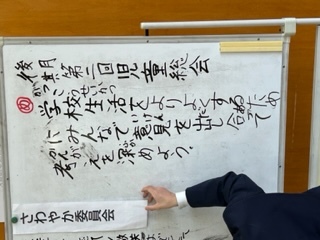 後期第二回児童総会
め
がっこうせいかつ
学校生活をよりよくするため
いけん だ あ
にみんなで意見を出し合って
かんが ふか
考えを深めよう。
さわやか委員会